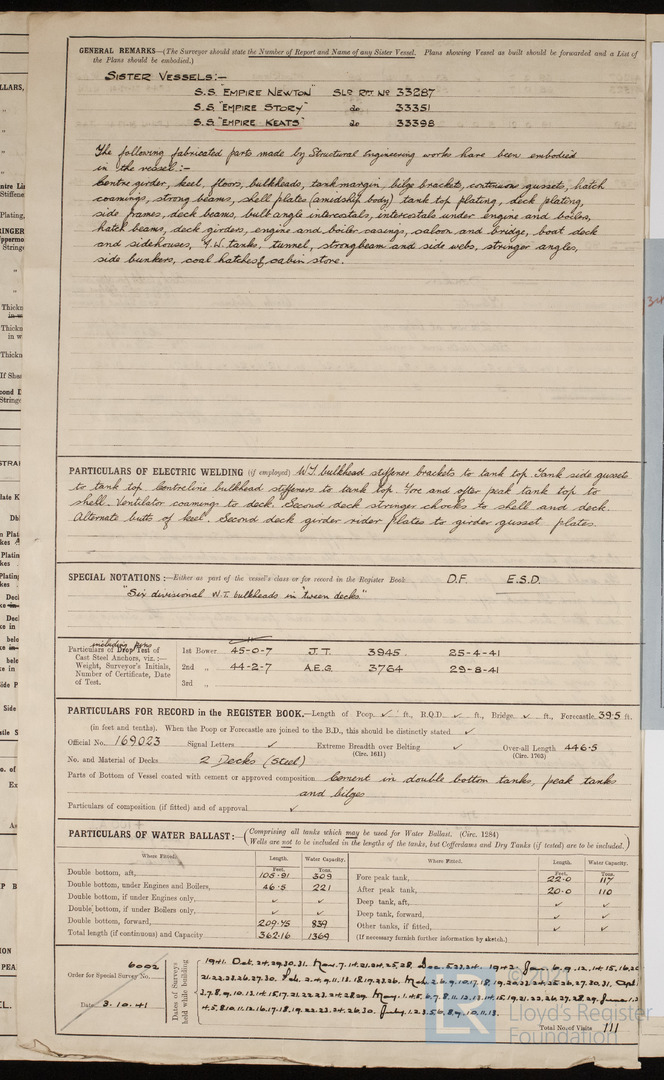 GENERAL REMARKS—(The Surveyor should state the Number of Report and Name of any Sister Vessel. Plans showing Vessel as built should be forwarded and a List of
the Plans should be embodied.)
SISTER VESSELS:—
S.S. "EMPIRE NEWTON" SLD. RPT. No 33287
S.S. "EMPIRE STORY" do 33351
S.S. "EMPIRE KEATS" do 33398
The following fabricated parts made by Structural Engineering works have been embodied
in the vessel:—
Centre girder, keel, floors, bulkheads, tank margin, bilge brackets, continuous gussets, hatch
coamings, strong beams, shell plates (amidship body) tank top plating, deck plating,
side frames, deck beams, bulb angle intercostals, intercostals under engine and boilers,
hatch beams, deck girders, engine and boiler casings, saloon and bridge, boat deck
and sidehouses, F.W. tanks, tunnel, strongbeam and side webs, stringer angles,
side bunkers, coal hatches & cabin store.
PARTICULARS OF ELECTRIC WELDING (if employed) W.T. bulkhead stiffener brackets to tank top. Tank side gussets
to tank top. Centreline bulkhead stiffeners to tank top. For and after peak tank top to
shell. Ventilator coamings to deck. Second deck stringer chocks to shell and deck.
Alternate butts of keel. Second deck girder rider plates to girder gusset plates.
SPECIAL NOTATIONS:—Either as part of the vessel's class or for record in the Register Book D.F. E.S.D.
"Six divisional W.T. bulkheads in 'tween decks"
including pins
Particulars of Drop Test of 1st Bower 45-0-7 J.T. 3945 25-4-41
Cast Steel Anchors, viz.:—
Weight, Surveyor's Initials, 2nd " 44-2-7 A.E.G. 3764 29-8-41
Number of Certificate, Date
of Test. 3rd "
PARTICULARS FOR RECORD in the REGISTER BOOK.—Length of Poop ✓ ft., R.Q.D. ✓ ft., Bridge ✓ ft., Forecastle 39.5 ft.
(in feet and tenths). When the Poop or Forecastle are joined to the B.D., this should be distinctly stated ✓
Official No. 169023 Signal Letters ✓ Extreme Breadth over Belting ✓ Over-all Length 446.5
(Circ. 1611) (Circ. 1703)
No. and Material of Decks 2 Decks (Steel)
Parts of Bottom of Vessel coated with cement or approved composition Cement in double bottom tanks, peak tanks
and bilges
Particulars of composition (if fitted) and of approval ✓
PARTICULARS OF WATER BALLAST:—(Comprising all tanks which may be used for Water Ballast. (Circ. 1284)
Wells are not to be included in the lengths of the tanks, but Cofferdams and Dry Tanks (if tested) are to be included.)
Where Fitted. Length. Water Capacity. Where Fitted. Length. Water Capacity.
Feet. Tons. Feet. Tons.
Double bottom, aft, 105.91 309 Fore peak tank, 22.0 117
Double bottom, under Engines and Boilers, 46.5 221 After peak tank, 20.0 110
Double bottom, if under Engines only, ✓ ✓ Deep tank, aft, ✓ ✓
Double bottom, if under Boilers only, ✓ ✓ Deep tank, forward, ✓ ✓
Double bottom, forward, 209.75 839 Other tanks, if fitted, ✓ ✓
Total length (if continuous) and Capacity 362.16 1369 (If necessary furnish further information by sketch.)
Order for Special Survey No. 6002
Date 3.10.41
Dates of Surveys held while building
Total No. of Visits 111
© 2021
Lloyd's Register
Foundation